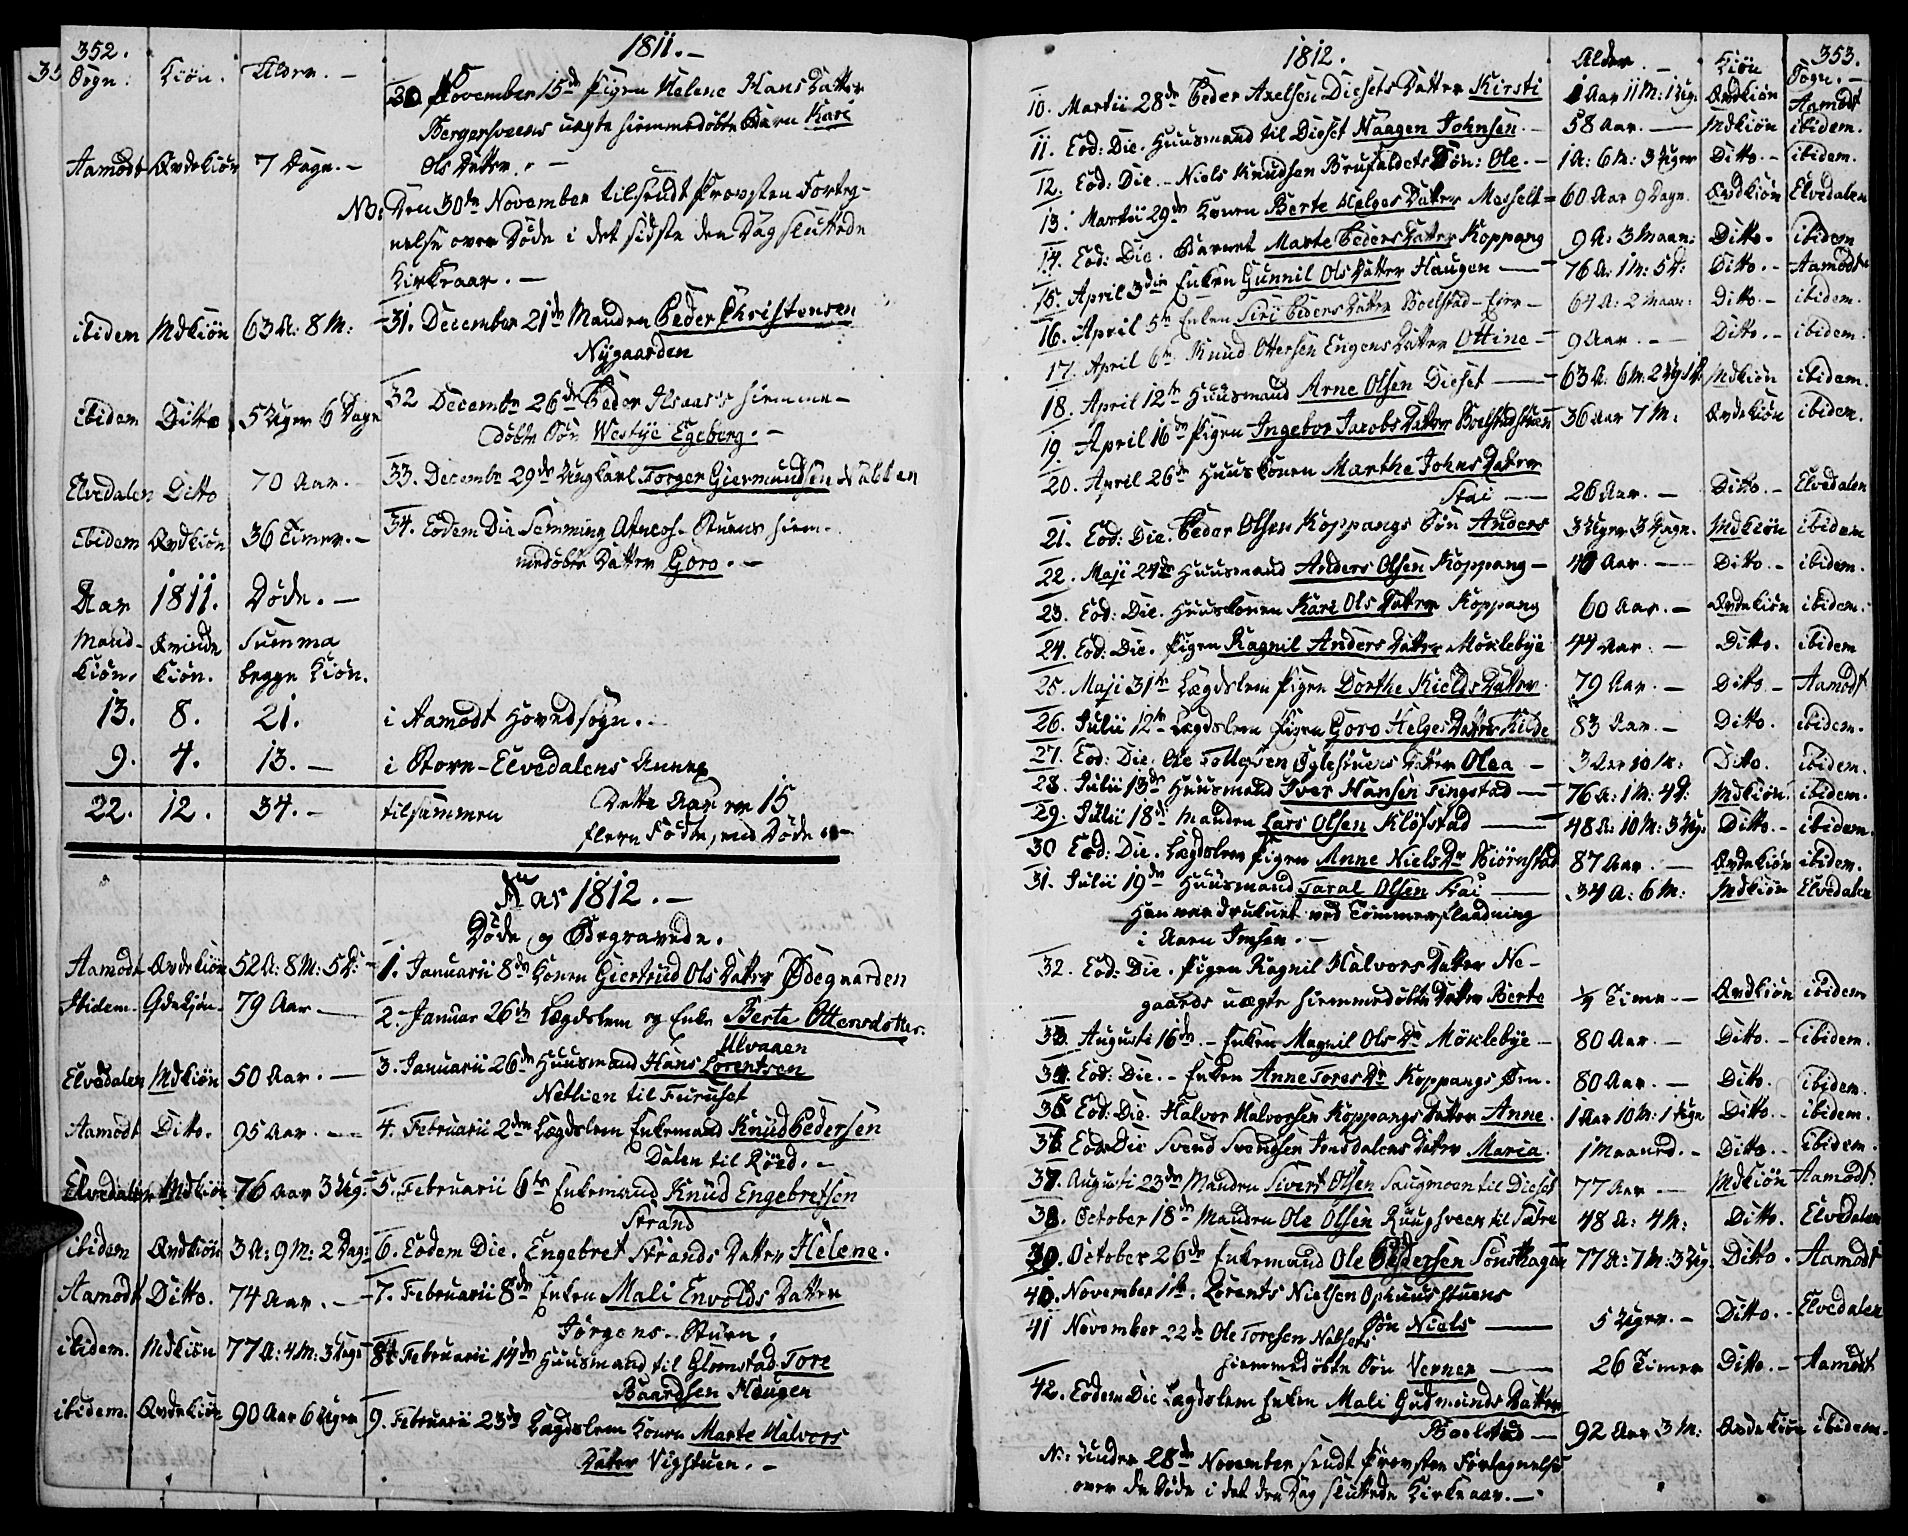 352.
1811.-
Sogn. Kiön. Alder.-
30 November 15de Pigen Helene HansDatter
Bergersveens uægte hiemmedøbte Barn Kari
Aamodt Qvdekiön 7 Dage.- Ols Datter.-
NB: Den 30te November tilsendt Provsten Forteg-
nelse over Døde i det sidste den Dag sluttede
Kirkeaar.-
ibidem Mdkiön 63 A: 8 M:- 31. December 21de Manden Peder Christensen
Nygaarden
ibidem Ditto 5 Uger 6 Dage 32 Decembr 26de Peder hiemme-
døbte Sön Westye Egeberg.-
Elvedalen Ditto 70 Aar.- 33. Decembr 29de Ungkarl Torger Giermundsen
ibidem Qvdkiön 36 Timer.- 34. Eodem Die Semming Stuens hiem-
medøbte Datter Goro.-
Aar 1811. Døde.-
Mand- Qvinde Summa
kiön. kiön. begge Kiön.
13. 8. 21. i Aamodt Hovedsogn.-
9. 4. 13.- i Store-Elvedalens Annex
22. 12. 34.- tilsammen Dette Aar er 15
flere Födte, end Døde
Aar 1812.-
Døde og Begravede.
Aamodt Qvdekiön 52 A: 8 M: 5 D:- 1. Januarii 8de Konen Giertrud Ols Datter Ødegaarden
Ibidem. Qdekjön. 79 Aar 2. Januar 26de Lægdslem og Enke Berte Ottersdotter.
Ulvaaen
Elvedalen Mdkiön 50 Aar.- 3. Januarii 26de Huusmand Hans Lorentsen
Netlien til Furuset
Aamodt Ditto. 95 Aar.- 4. Februarii 2den Lægdslem Enkemand Knud Pedersen
Dalen til Röed.-
Elvedalen Mdkiön 76 Aar 3 Ug:- 5. Februarii 6te Enkemand Knud Engebretsen
Strand
ibidem Qvdkiön 3 A: 9 M: 2 Dag: 6. Eodem Die. Engebret Strands Datter Helene.
Aamodt Ditto. 74 Aar.- 7. Februarii 8de Enken Mali Envolds Datter
Jörgens-Stuen.
ibidem. Mdkiön 77 A: 4 M: 3 Uger 8. Februarii 14de Huusmand til Glomstad Tore
Baardsen Haugen
ibidem. Qvdekiön 90 Aar 6 Uger 9. Februarii 23de Lægdslem Konen Marte Halvors
Datter Vigstuen.-
1812. Alder.- Kiön 353.
Sogn.-
10. Martii 28de Peder Axelsen Diesets Datter Kirsti 1 Aar 11 M: 1 Ug: Qvdkiön Aamodt
11. Eod: Die. Huusmand til Dieset Haagen Johnsen.- 58 Aar.- Mdkiön ibidem.
12. Eod: Die.- Niels Knudsen Brufaldets Sön: Ole.- 1 A: 6 M: 3 Uger Ditto.- ibidem.
13. Martii 29de Konen Berte Helges Datter Messelt= 60 Aar 9 Dage. Qvdkiön Elvedalen
14. Eod: Die. Barnet Marte Peders Datter Koppang 9 A: 3 Maan: Ditto.- ibidem
15. April 3die Enken Gunnil Ols Datter Haugen- 76 A: 1 M: 5 D: Ditto.- Aamodt
16. April 5te Enken Siri Peders Datter Boelstad-Eier- 64 A: 2 Maan: Ditto.- ibidem.
17. April 6te Knud Ottersen Engens Datter Ottine- 9 Aar.- Ditto.- ibidem.
18. April 12te Huusmand Arne Olsen Dieset- 63 A: 6 M: 2 Ug Mdkiön ibidem.
19. April 16de Pigen Ingebor Jacobs Datter Boelstadstuen 36 Aar 7 M: Qvdekiön ibidem.
20. April 26de Huuskonen Marthe Johns Datter
Stai- 26 Aar.- Ditto.- Elvedalen
21. Eod: Die. Peder Olsen Koppangs Sön Anders 3 Uger 3 Dage. Mdkiön ibidem
22. Maji 24de Huusmand Anders Olsen Koppang- 40 Aar.- Ditto.- ibidem.
23. Eod: Die. Huuskonen Kari Ols Datter Koppang 60 Aar.- Qvdekiön ibidem.
24. Eod: Die. Pigen Ragnil Anders Datter Möklebye 44 Aar.- Ditto. ibidem
25. Maji 31te Lægdslem Pigen Dorthe Kields Datter 79 Aar.- Ditto.- Aamodt
26. Julii 12te Lægdslem Pigen Goro Helges Datter Kilde 83 Aar.- Ditto. ibidem.
27. Eod: Die. Ole Tollefsen Oglestuens Datter Olea- 3 Aar 10 M: Ditto. ibidem.
28. Julii 13de Huusmand Iver Hansen Tingstad- 76 A: 1 M: 4 D: Mdkiön. ibidem.
29. Julii 18de Manden Lars Olsen Klöfstad- 48 A: 10 M: 3 Ug: Ditto.- ibidem.
30 Eod: Die. Lægdslem Pigen Anne Niels Dr Biörnstad 87 Aar.- Qvdekiön ibidem.
31. Julii 19de Huusmand Taral Olsen Stai- 34 A: 6 M: Mdkiön Elvedalen
Han var druknet ved Tömmerflaadning
i Aaen Imsen.-
32. Eod: Die. Pigen Ragnil Halvors Datter Ne-
gaards uægte hiemmedøbte Datter Berte ¼ Time.- Qvdkiön ibidem
33. Augusti 16de.- Enken Magnil Ols Dr Möklebye- 80 Aar.- Ditto.- ibidem.
34. Eod: Die.- Enken Anne Tores Dr Koppangs Öen. 80 Aar.- Ditto. ibidem.
35 Eod: Die. Halvor Halvorsen Koppangs Datter Anne. 1 Aar 10 M: 1 Uge Ditto.- ibidem.
36 Eod: Die Svend Svendsen Datter Maria. 1 Maaned.- Ditto.- ibidem.
37. Augusti 23de Manden Sivert Olsen Saugmoen til Dieset 77 Aar- Mdkiön Aamodt.
38. October 18de Manden Ole Olsen til 48 A: 4 M: Ditto. Elvedalen
39. October 26de Enkemand Ole Pedersen Sönskagen 77 A: 7 M: 3 Ug. Ditto. Aamodt
40. November 1te. Lorents Nielsen Ophuusstuens
Sön Niels- 5 Uger.- Ditto.- Elvedalen
41 November 22de Ole Toresen Nabsets
hiemmedøbte Sön Verner- 26 Timer Ditto.- Aamodt
42. Eodem Die Lægdslem Enken Mali Gudmunds Datter
Boelstad- 92 Aar 3 M: Qvdekiön ibidem.
N: under 28de November sendt Provsten Fortegnelse
over de Døde i det den Dag sluttede Kirkeaar.-